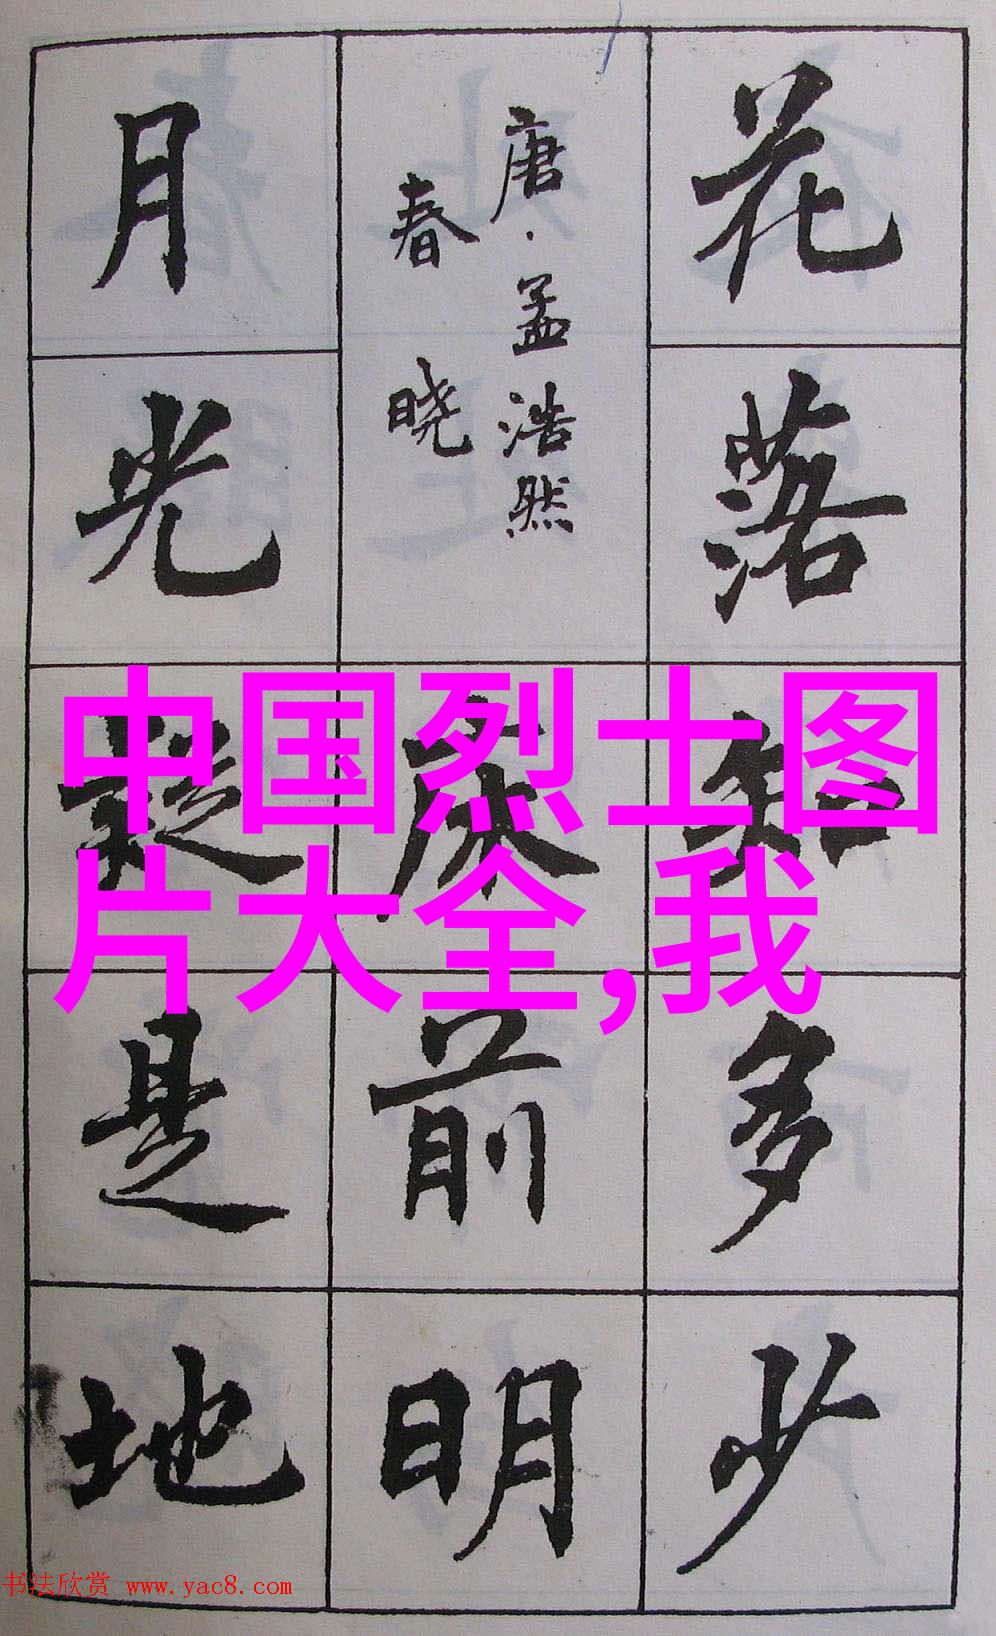 花落知多少
唐·孟浩然
春晓
床前明
月光疑是地
中国烈士图
片大全,我
书法欣赏 www.yac8.com